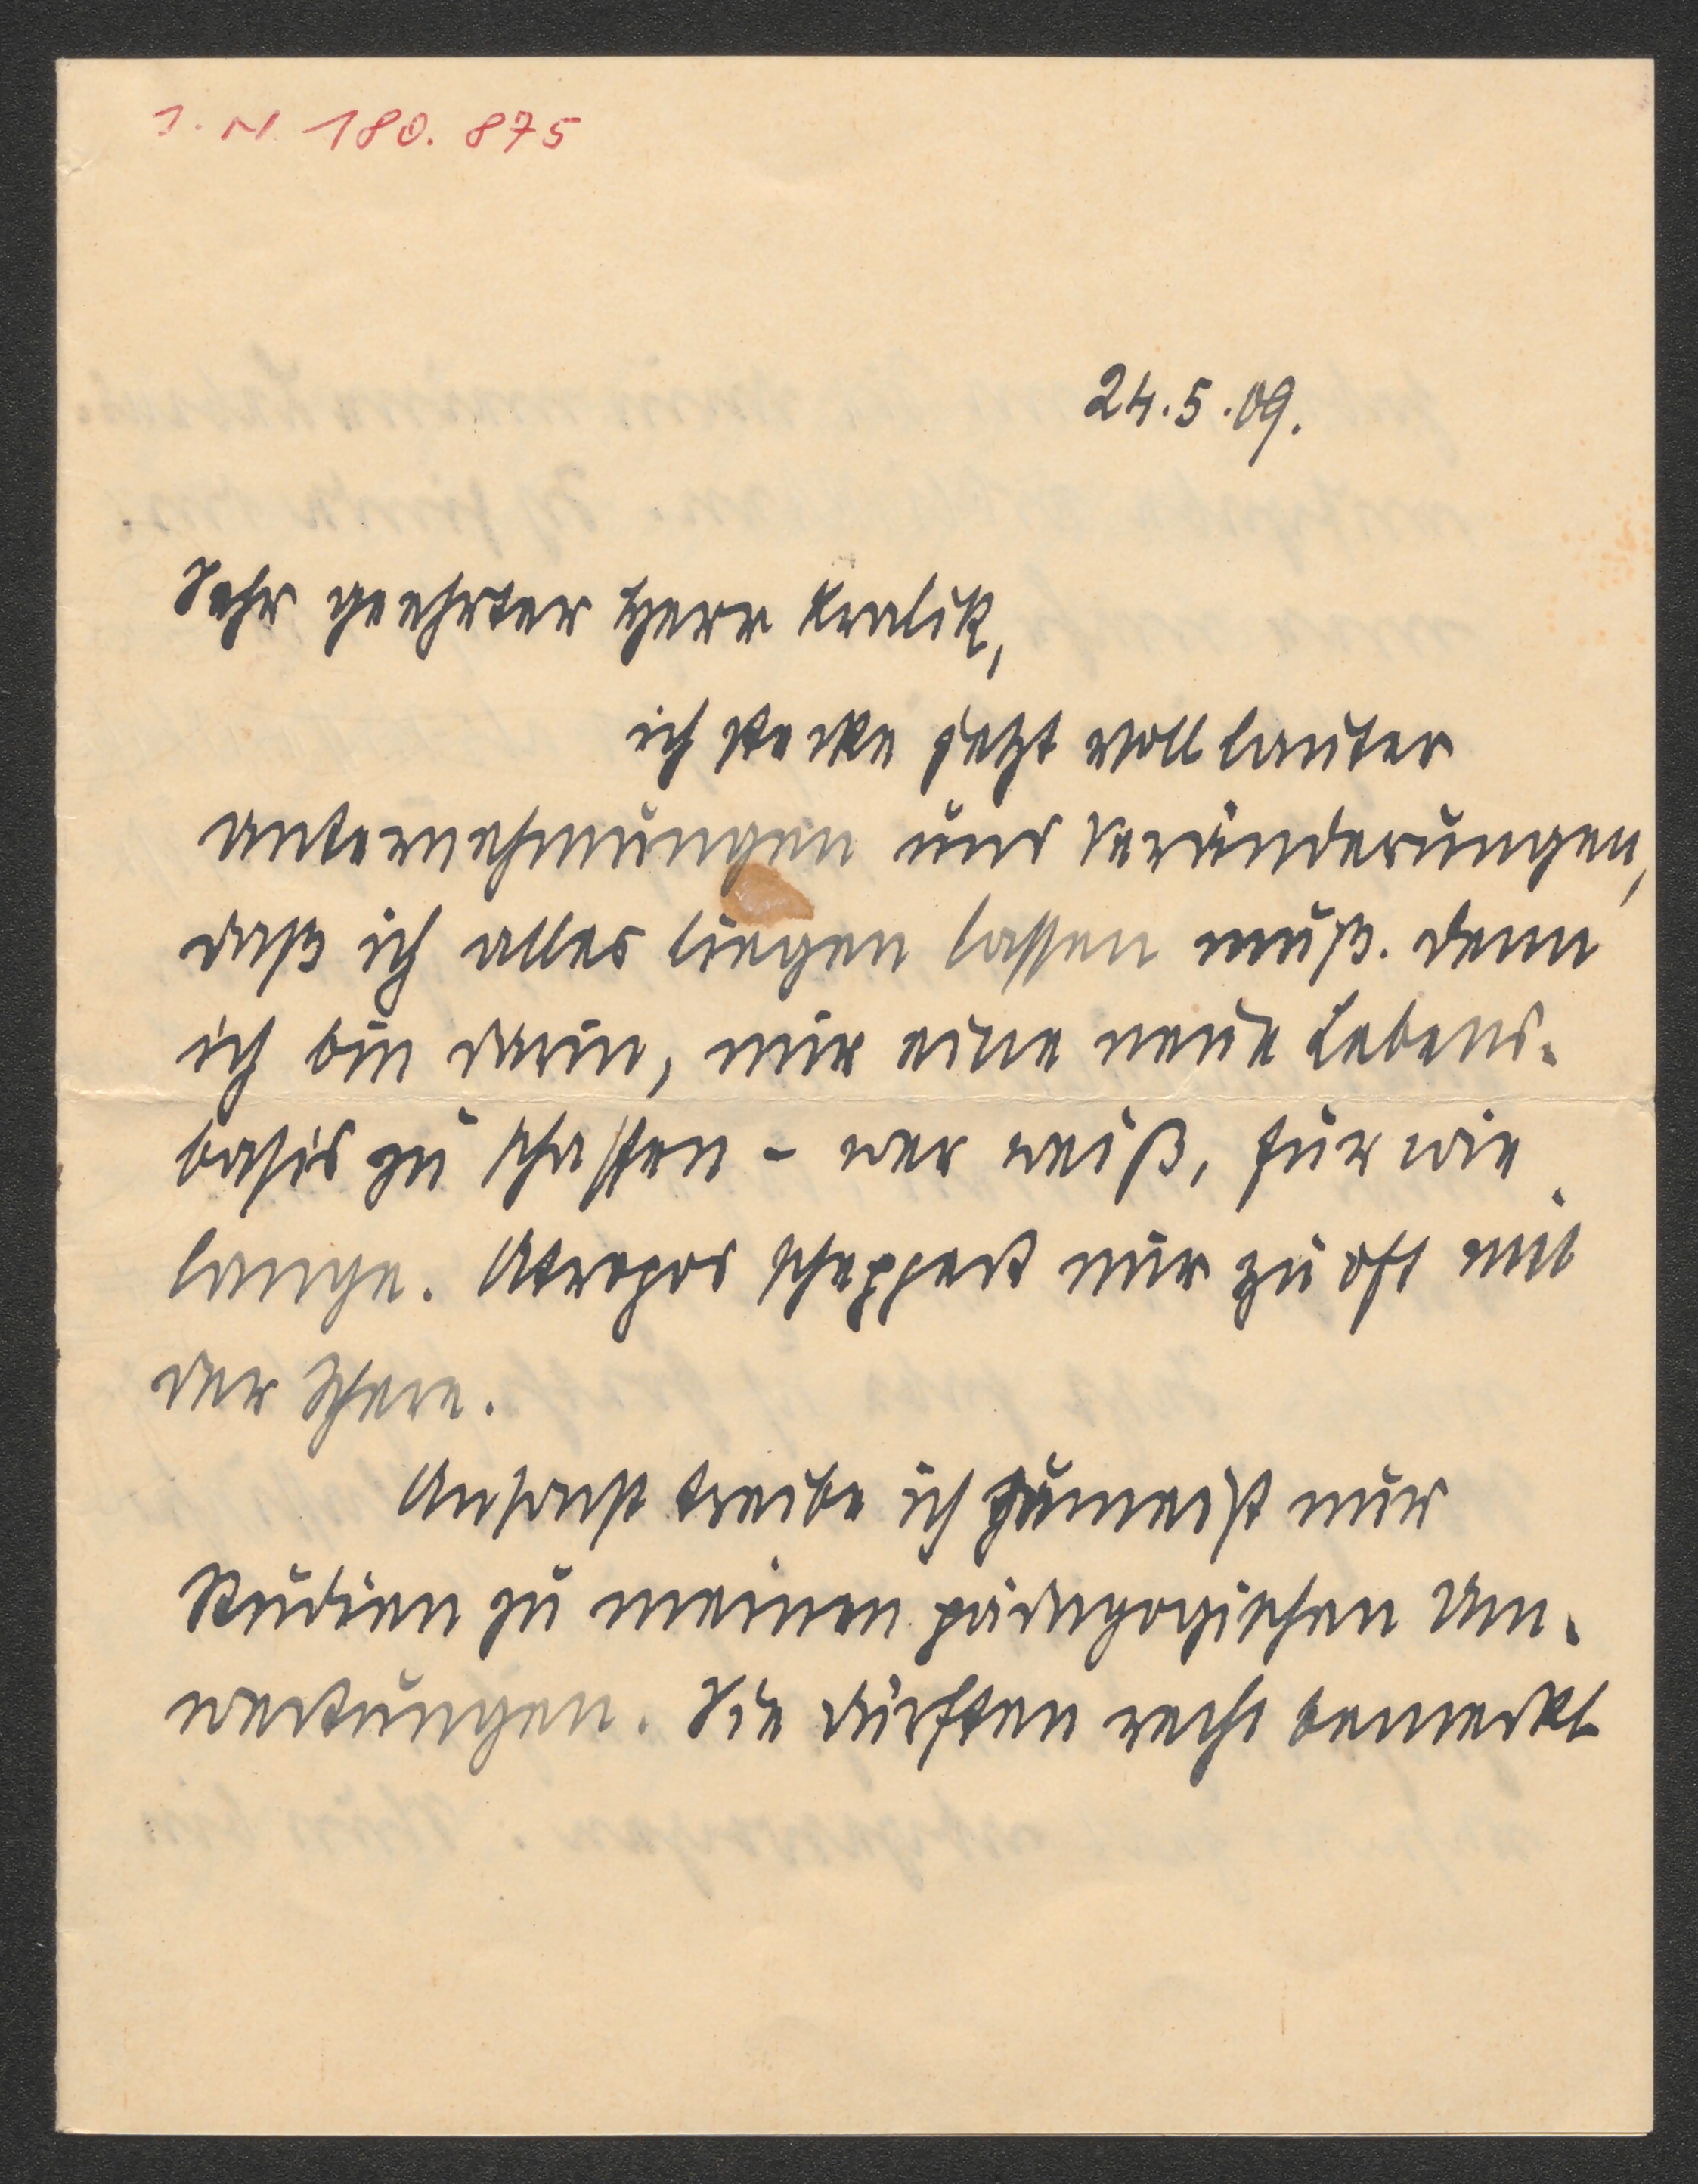 I. N. 180.875
24.5.09.
Sehr geehrter Herr Kralik,
ich stecke jetzt voll lauter
Unternehmungen und Veränderungen,
daß ich alles liegen lassen muß. Denn
ich bin darin, mir eine neue Lebens-
basis zu schaffen - wer weiß, für wie
lange. Atropos scheppert mir zu oft mit
der Schere.
Ansonst treibe ich zumeist nur
Studien zu meinen pädagogischen Um-
wertungen. Sie dürften recht bemerkt